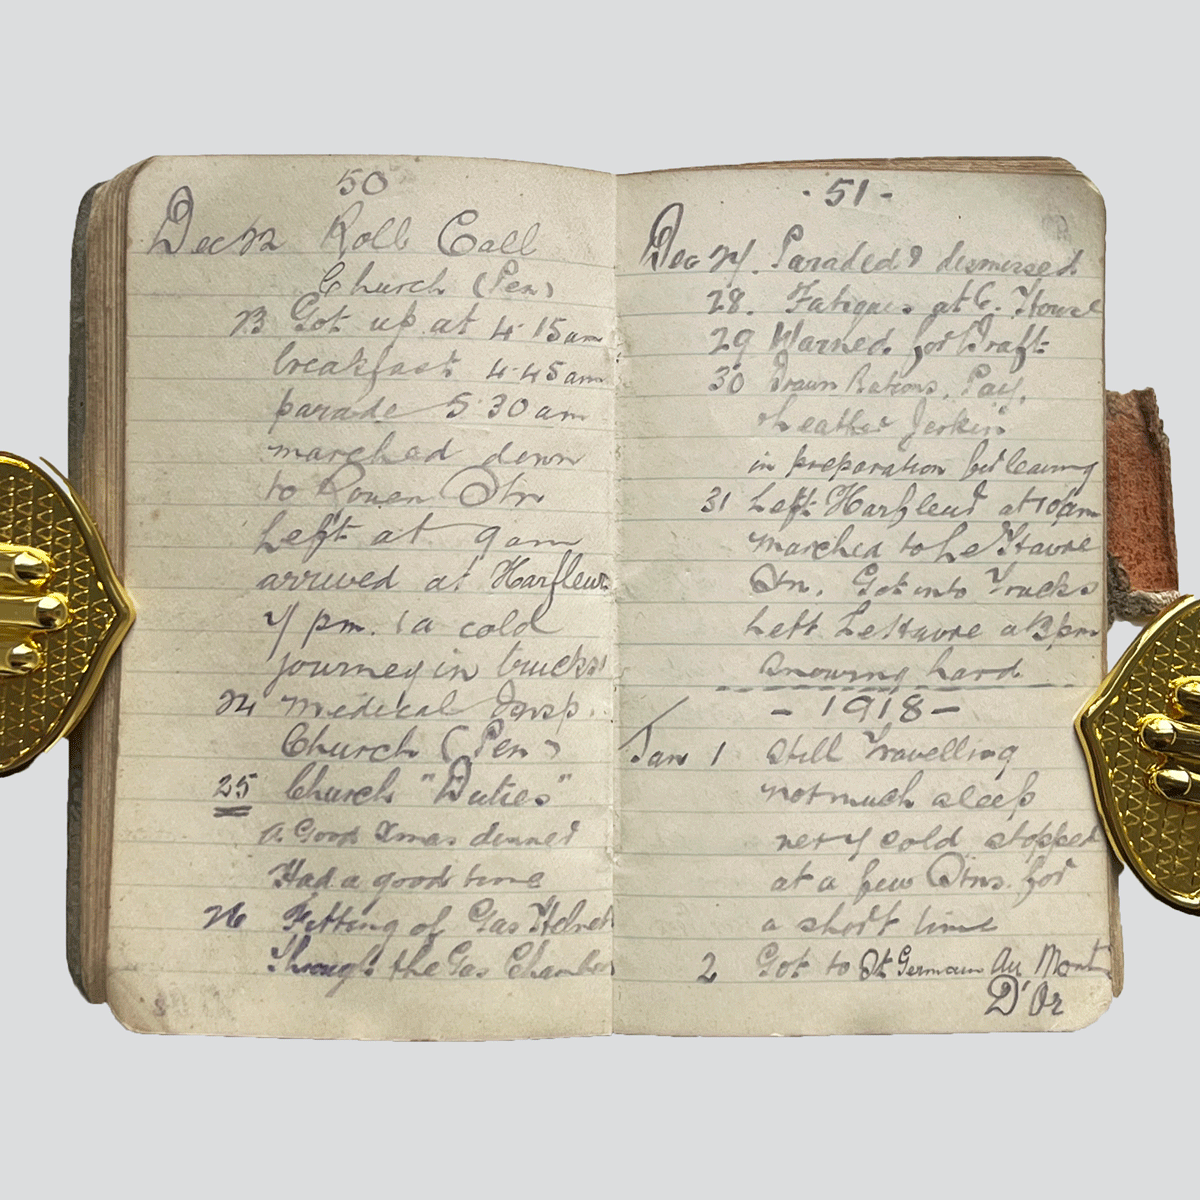 50
Dec 22 Roll Call
Church (Pen)
23 Got up at 4.15am
breakfast 4.45am
parade 5.30am
marched down
to Rouen Stn
Left at 9am
arrived at Harfleur
7 pm. (a cold
journey in trucks)
24 Medical Insp.
Church (Pen)
25 Church "Duties"
A Good Xmas dinner
Had a good time
26 Fitting of Gas Helmet
Through the Gas Chamber
- 51 -
Dec 27. Paraded & dismissed
28. Fatigues at C.
29 Warned for Draft
30 Drawn Rations, Pay,
Leather Jerkin
in preparation for leaving
31 Left Harfleur at 10am
marched to Le Havre
Stn. Got into Trucks
Left Le Havre at 3pm
snowing hard
- 1918 -
Jan 1 Still Travelling
not much sleep
very cold stopped
at a few Stns. for
a short time
2 Got to St Germain Au Mont
D'Or